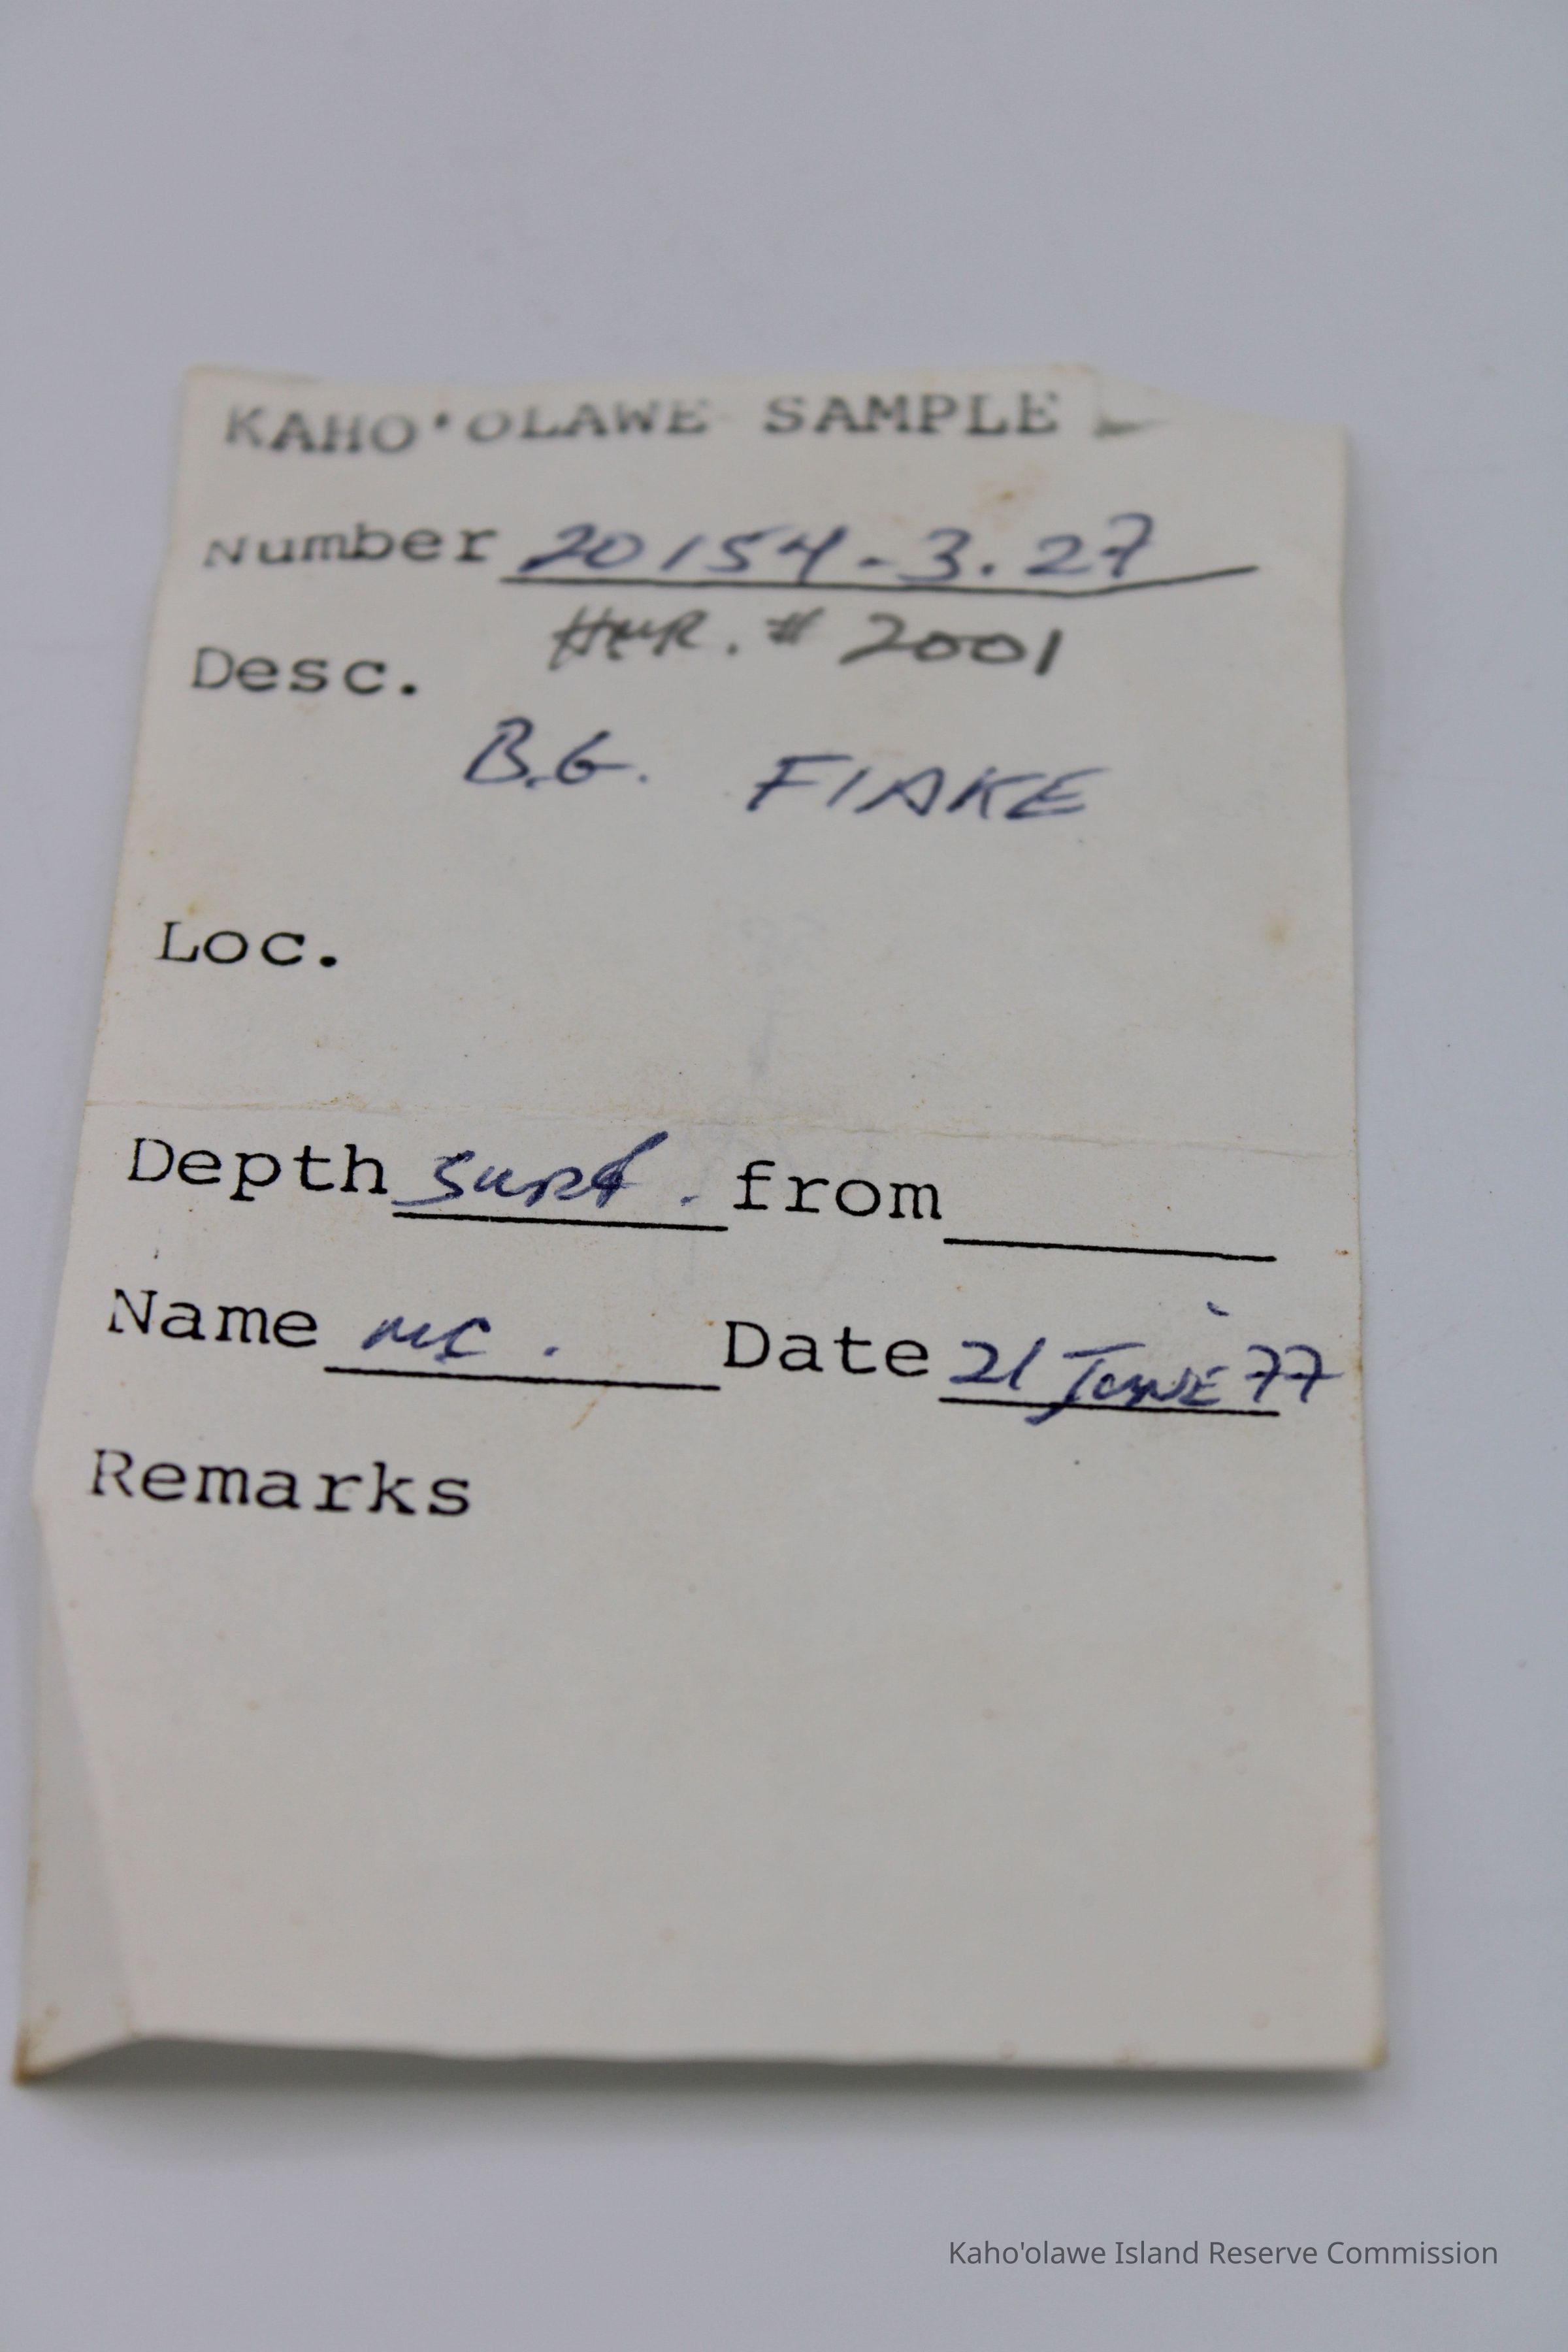 KAHO'OLAWE SAMPLE
Number 20154-3.27
Desc. HMR. # 2001
B.G. FlAKE
Loc.
Depth surf. from
Name MC. Date 21 JUNE 77
Remarks
Kaho'olawe Island Reserve Commission